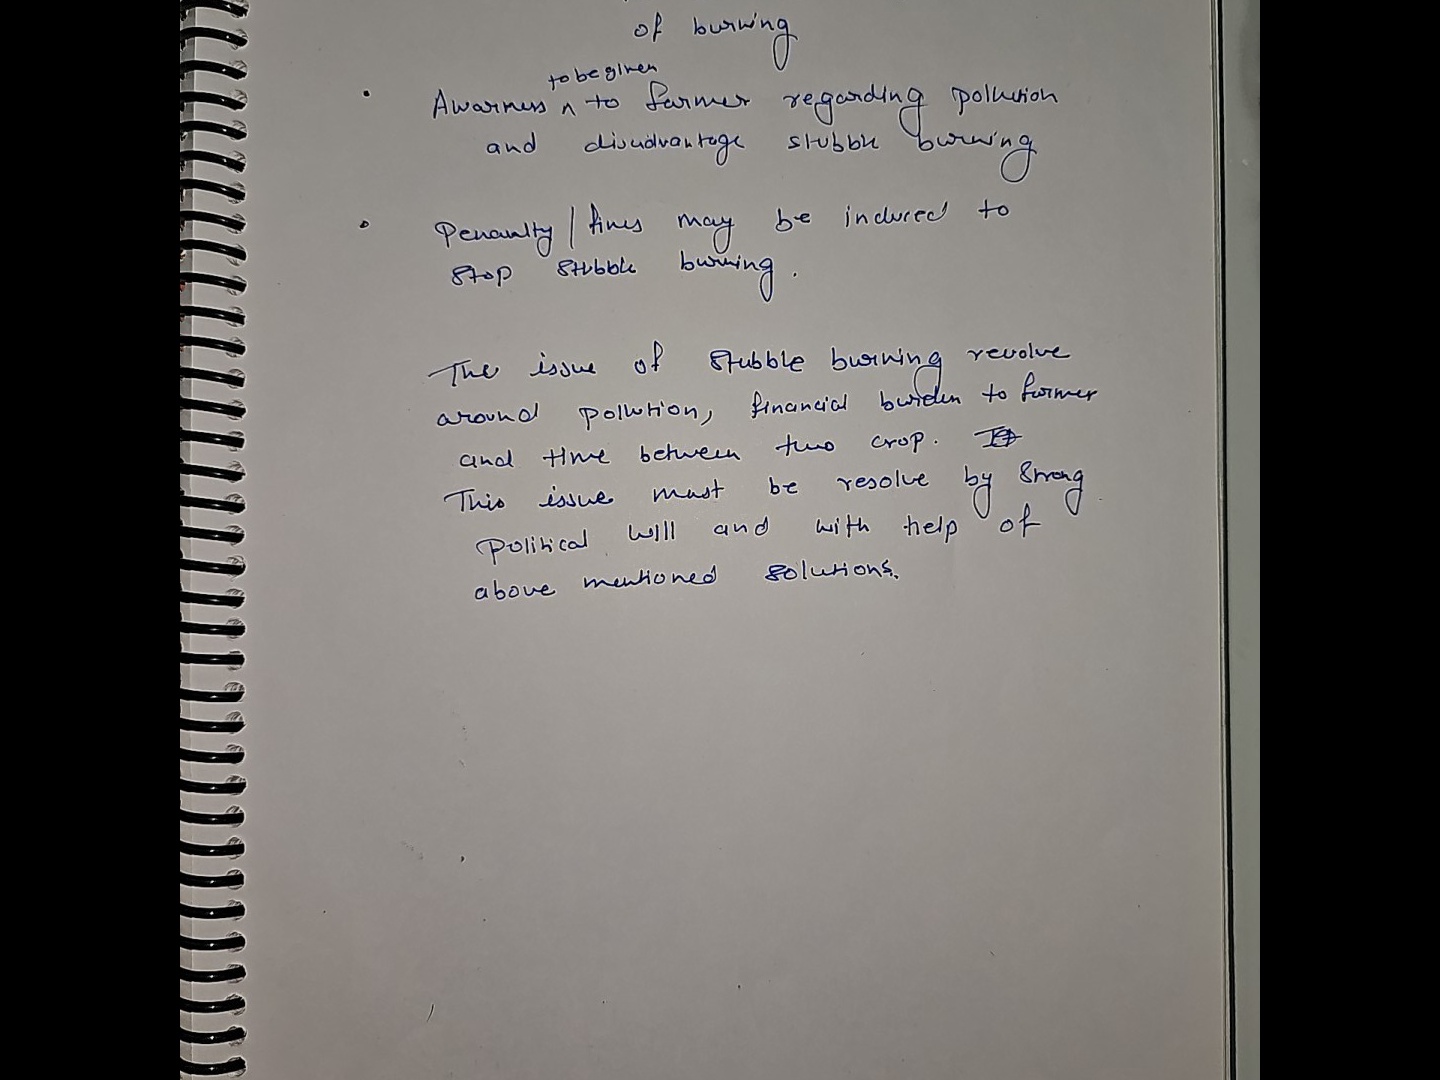 of burning
to be given
• Awarness ^ to farmer regarding pollution
and disadvantage stubble burning
• Penaulty / fines may be induced to
stop stubble burning.
The issue of stubble burning revolve
around pollution, financial burden to farmer
and time between two crop.
This issue must be resolve by strong
political will and with help of
above mentioned solutions.